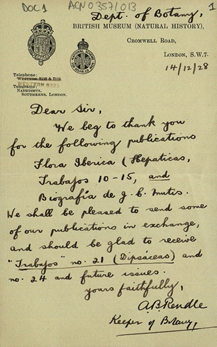 DOC1 ACN 0357/013 1
Dept. of Botany,
BRITISH MUSEUM (NATURAL HISTORY),
CROMWELL ROAD,
LONDON, S.W.7.
14/12/28
Telephone:
Telegrams:
Dear Sir,
We beg to thank you
for the following publications
Flora Iberica (Hepaticas,
Trabajos 10-15, and
Biografía de J. C. Mutis.
We shall be pleased to send some
of our publications in exchange,
and should be glad to receive
"Trabajos" no. 21 (Dipsaceas) and
no. 24 and future issues.
yours faithfully,
A.B. Rendle
Keeper of Botany,